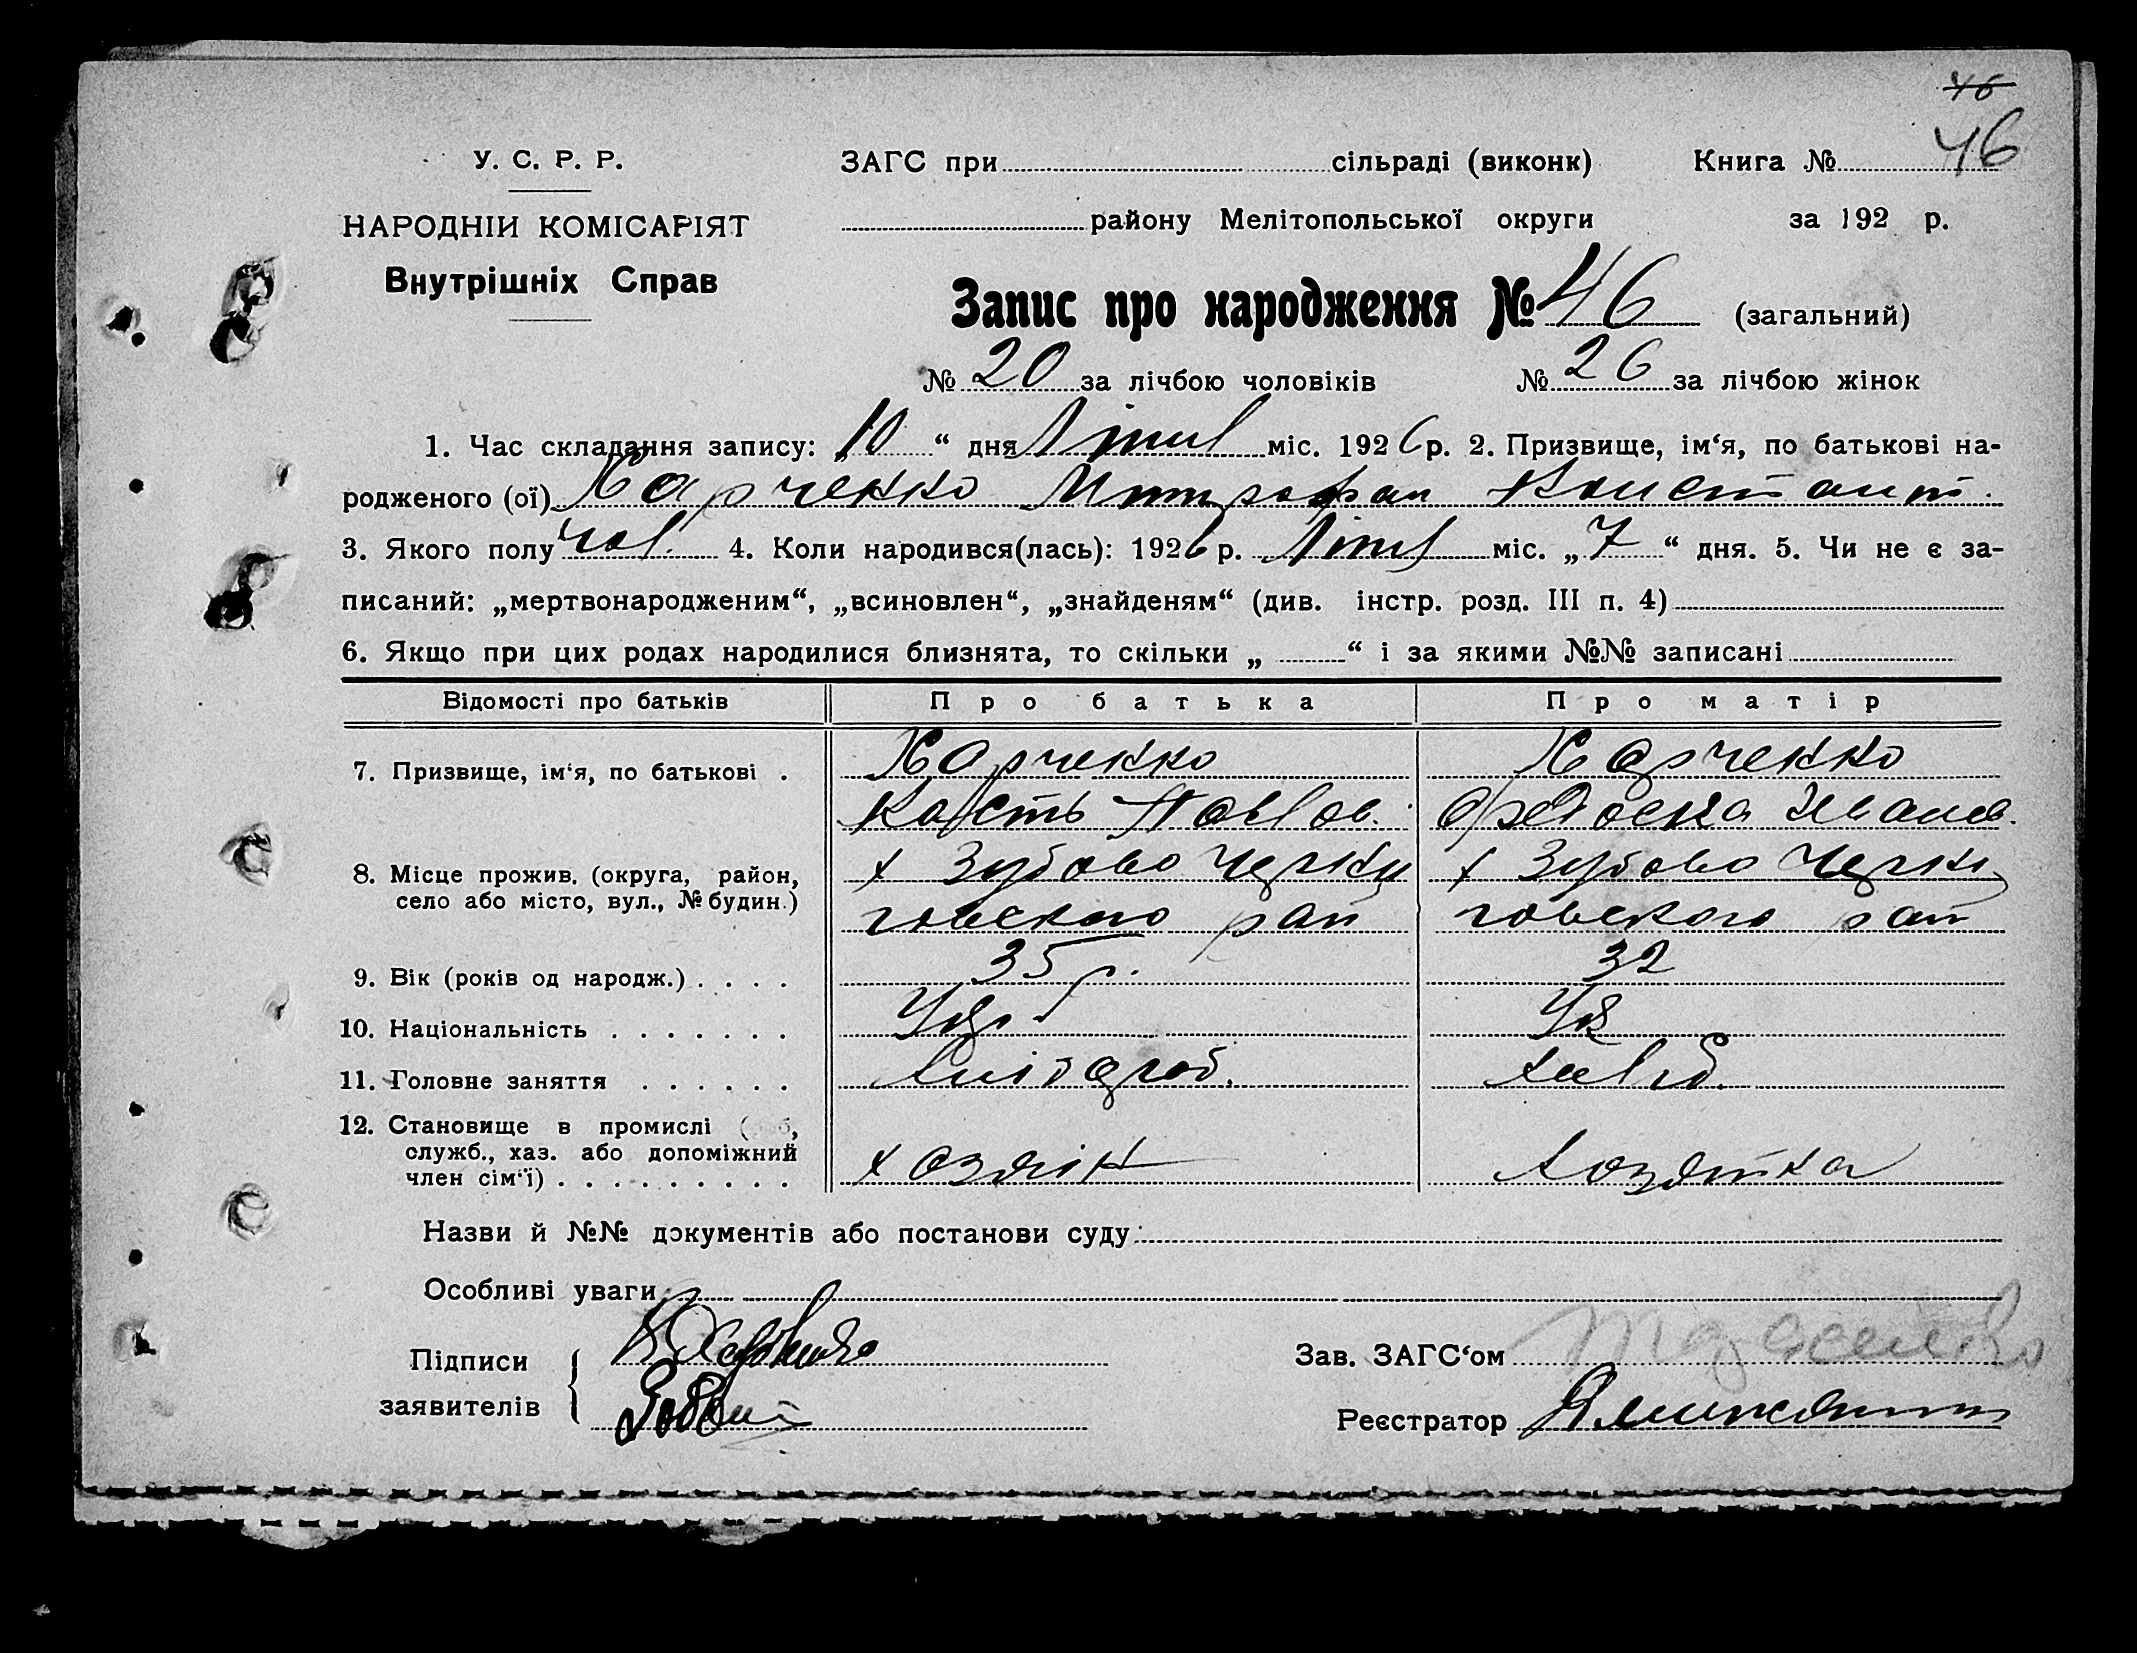 46
46
У. С. Р. Р.
ЗАГС при сільраді (виконк) Книга №
НАРОДНІЙ КОМІСАРІЯТ
району Мелітопольської округи за 192 р.
Внутрішніх Справ
Запис про народження № 46 (загальний)
№ 20 за лічбою чоловіків № 26 за лічбою жінок
1. Час складання запису: „10“ дня Липня міс. 1926 р. 2. Призвище, ім‘я, по батькові на-
родженого (ої) Харченко Митрофан Констант.
3. Якого полу чол. 4. Коли народився(лась): 1926 р. міс. „7“ дня. 5. Чи не є за-
писаний: „мертвонародженим“, „всиновлен“, „знайденям“ (див. інстр. розд. III п. 4)
6. Якщо при цих родах народилися близнята, то скільки „ “ і за якими №№ записані
Відомості про батьків Про батька Про матір
7. Призвище, ім‘я, по батькові . Харченко Харченко
Кость Павлов. Федоска Иванов.
8. Місце прожив. (округа, район, х Зубово Черни х Зубово Черни
село або місто, вул., № будин.) говского рай говского рай
9. Вік (років од народж.) . . . . 35 р. 32
10. Національність . . . . . . . Укр Ук
11. Головне заняття . . . . . . Хлібороб. Хлібр.
12. Становище в промислі (
служб., хаз. або допоміжний хозяїн Хозяйка
член сім‘ї) . . . . . . . . .
Назви й №№ документів або постанови суду:
Особливі уваги
Підписи
заявителів
Зав. ЗАГС‘ом
Реєстратор